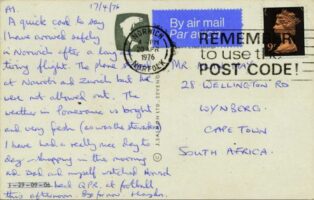 A1.
17/4/76
A quick card to say
I have arrived safely
in Norwich after a long
tiring flight. The plane
at Nairobi and Zurich but he
were not allowed out. The
weather in is bright
and very fresh
I have had a really nice day to
day - shopping in the morning
and Dad and myself watched Norwich
1-27-09-06 beat QPR, at football
this afternoon. Bye for now
By air mail
Par avion
NORWICH
1976
NORFOLK
9P
REMEMBER
to use the
POST CODE!
MR
28 WELLINGTON RD
WYNBERG
CAPE TOWN
SOUTH AFRICA.